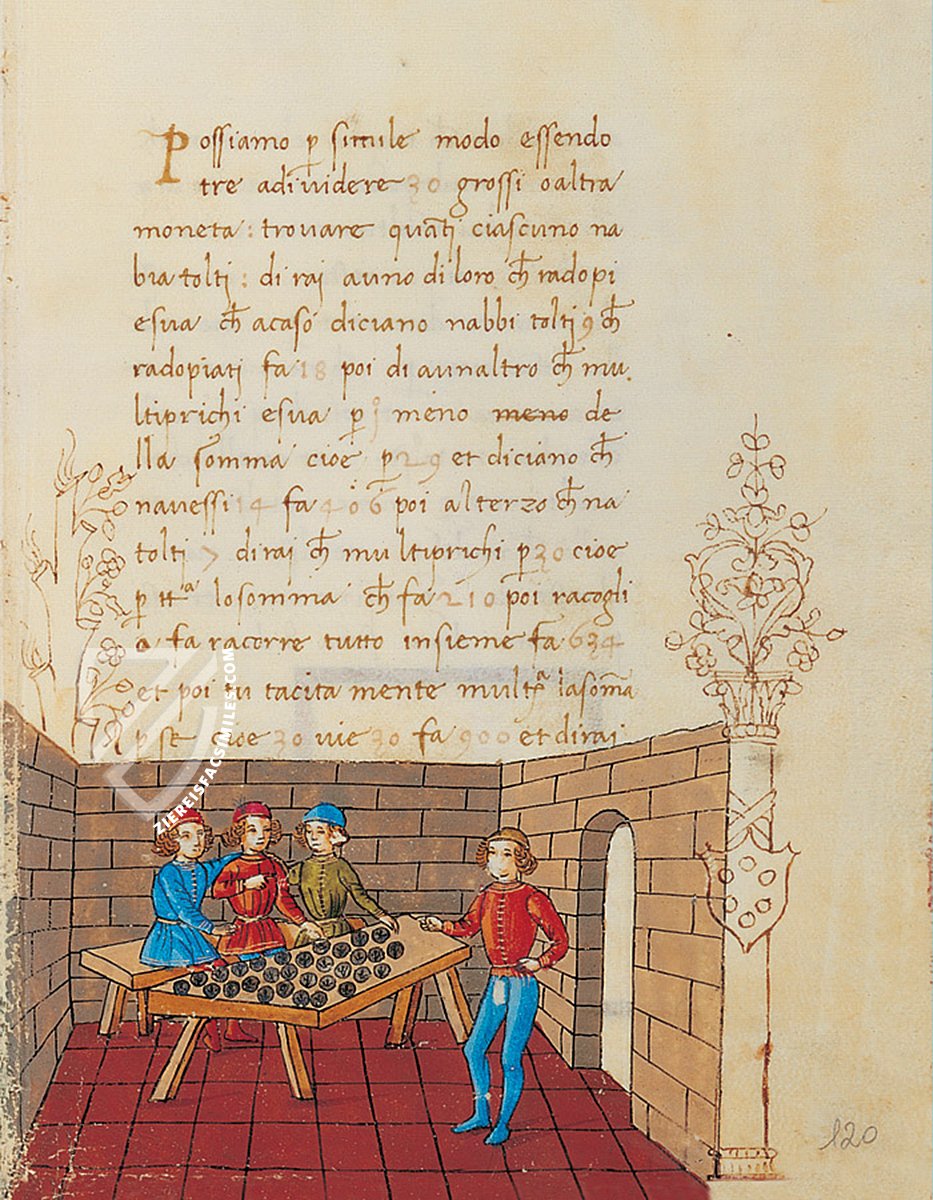 Possiamo p simile modo essendo
tre adividere 30 grossi o altra
moneta : trovare quāti ciascuno na
bia tolti : di rai auno di loro ch̄ radopi
esua ch̄ acaso diciano nabbi tolti 9 ch̄
radopiati fa 18 poi di aunaltro ch̄ mu
ltiprichi esua p 1 meno meno de
lla somma cioe p 29 et diciano ch̄
navessi 14 fa 406 poi alterzo ch̄ na
tolti 7 dirai ch̄ multiprichi p 30 cioe
p ttª losomma ch̄ fa 210 poi racogli
a fa racorre tutto insieme fa 634
et poi tu tacita mente multª lasomª
p se cioe 30 vie 30 fa 900 et dirai
ZIEREISFACSIMILES.COM
120